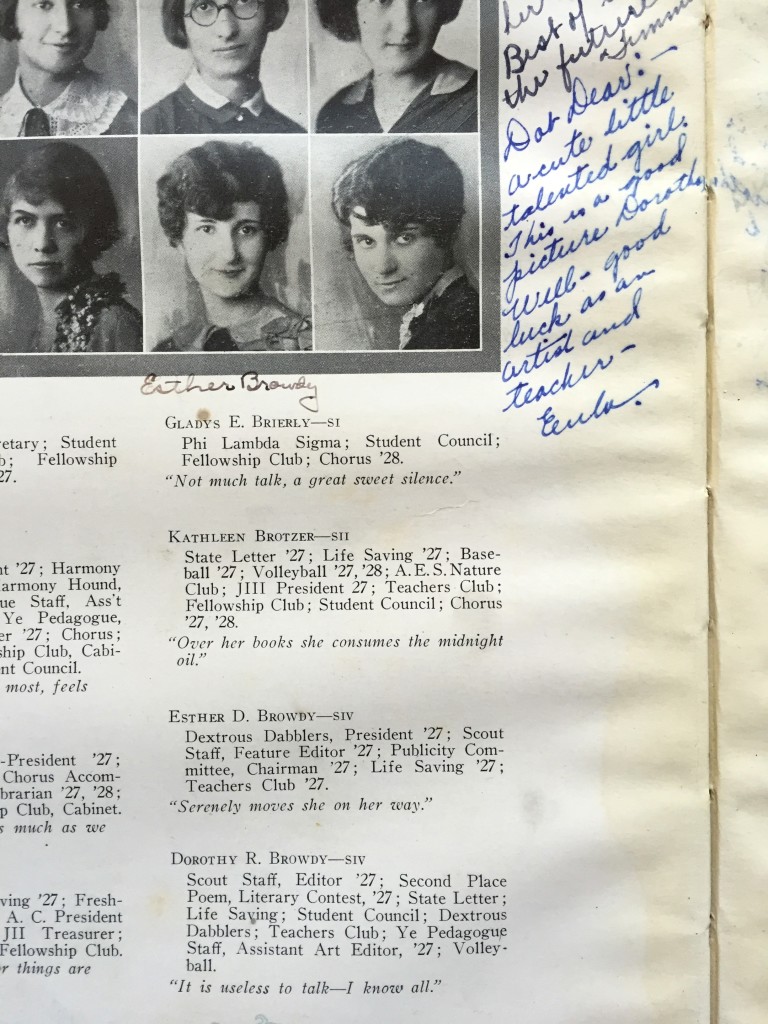 her
Best of
the future
Dot Dear:—
a cute little
talented girl.
This is a good
picture Dorothy
Well— good
luck as an
artist and
teacher—
Eula.
Esther Browdy
retary; Student
b; Fellowship
27.
nt '27; Harmony
armony Hound,
ue Staff, Ass't
Ye Pedagogue,
er '27; Chorus;
ship Club, Cabi-
nt Council.
most, feels
-President '27;
Chorus Accom-
brarian '27, '28;
p Club, Cabinet.
s much as we
ving '27; Fresh-
A. C. President
JIII Treasurer;
Fellowship Club.
r things are
GLADYS E. BRIERLY—SI
Phi Lambda Sigma; Student Council;
Fellowship Club; Chorus '28.
"Not much talk, a great sweet silence."
KATHLEEN BROTZER—SII
State Letter '27; Life Saving '27; Base-
ball '27; Volleyball '27, '28; A. E. S. Nature
Club; JIII President 27; Teachers Club;
Fellowship Club; Student Council; Chorus
'27, '28.
"Over her books she consumes the midnight
oil."
ESTHER D. BROWDY—SIV
Dextrous Dabblers, President '27; Scout
Staff, Feature Editor '27; Publicity Com-
mittee, Chairman '27; Life Saving '27;
Teachers Club '27.
"Serenely moves she on her way."
DOROTHY R. BROWDY—SIV
Scout Staff, Editor '27; Second Place
Poem, Literary Contest, '27; State Letter;
Life Saving; Student Council; Dextrous
Dabblers; Teachers Club; Ye Pedagogue
Staff, Assistant Art Editor, '27; Volley-
ball.
"It is useless to talk—I know all."